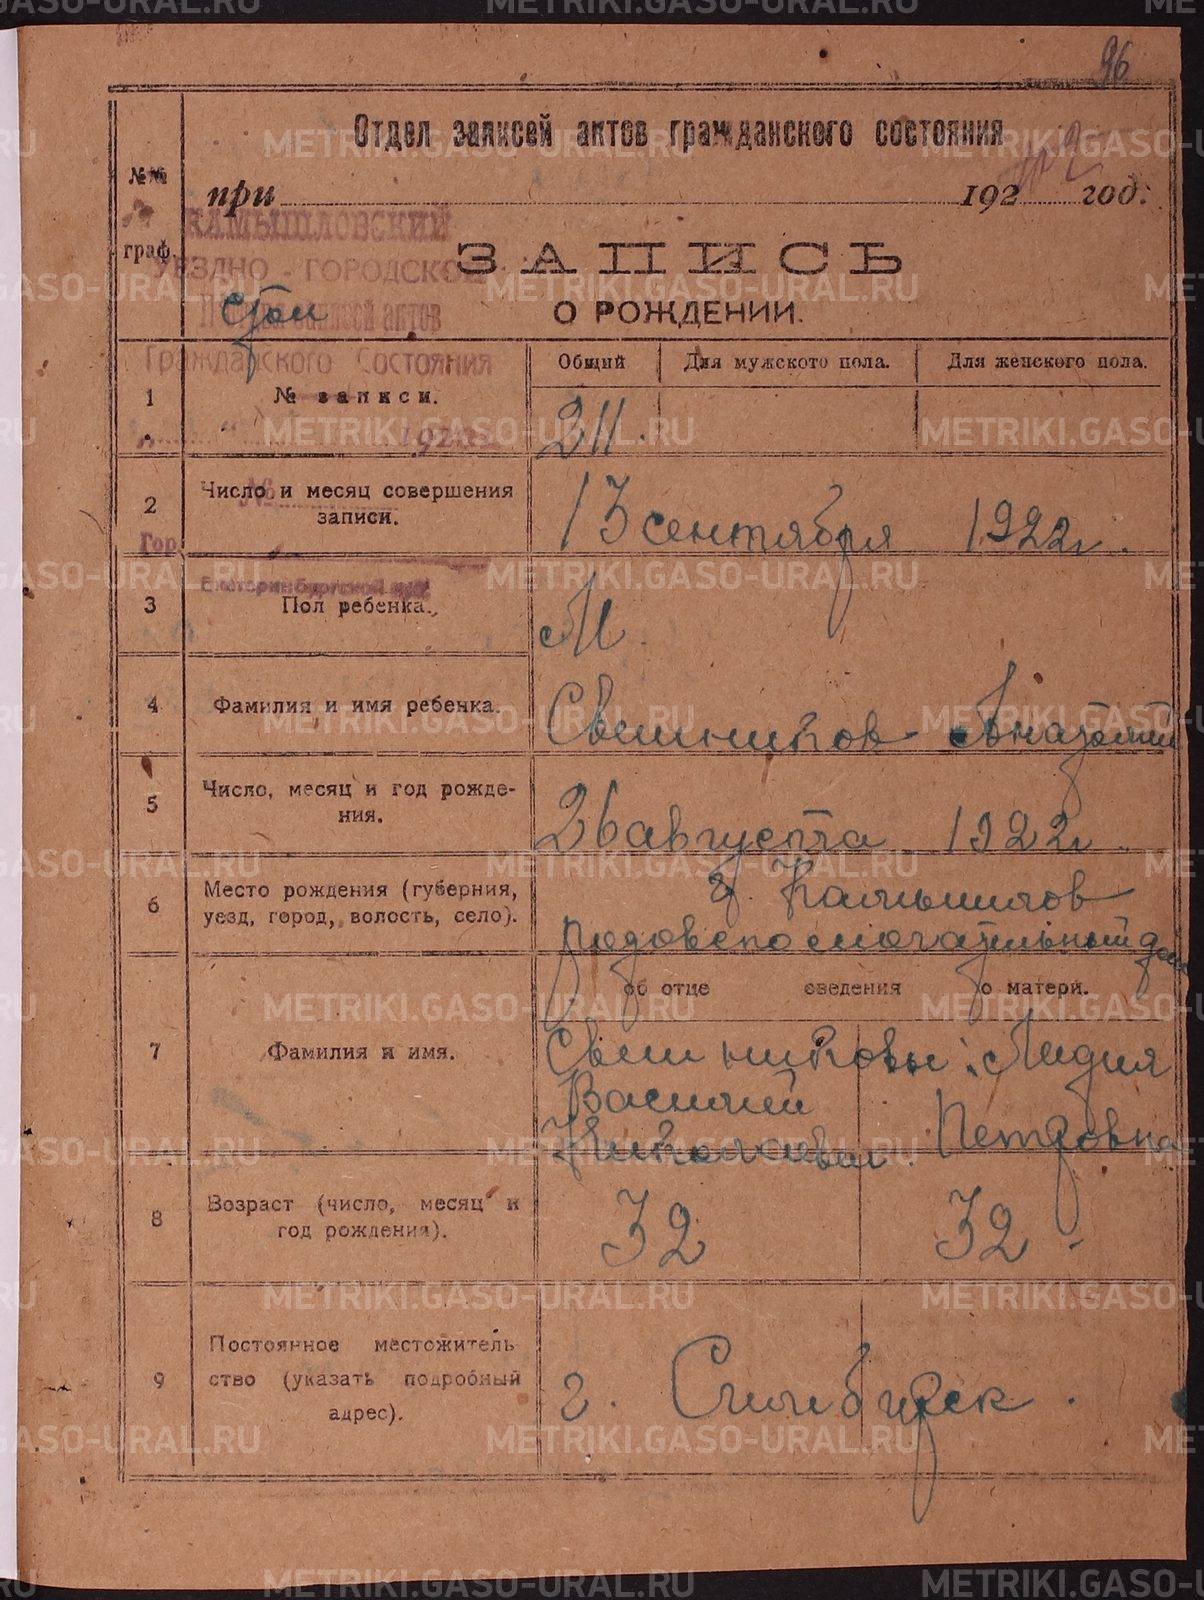 96
Отдел записей актов гражданского состояния
№№ граф.
при 192 2 год.
КАМЫШЛОВСКИЙ
УЕЗДНО - ГОРОДСКОЕ
записей актов
Гражданского Состояния
192
№
Гор.
Екатеринбургской
ЗАПИСЬ
О РОЖДЕНИИ.
Общий Для мужского пола. Для женского пола.
1 № записи. 211.
2 Число и месяц совершения
записи. 13 сентября 1922 г.
3 Пол ребенка. М.
4 Фамилия и имя ребенка. Свешников Анатолий
5 Число, месяц и год рожде-
ния. 26 августа 1922 г.
6 Место рождения (губерния,
уезд, город, волость, село). г. Камышлов
родовспомогательный дом
об отце сведения о матери.
7 Фамилия и имя. Свешниковы: Лидия
Василий
Николаевич. Петровна
8 Возраст (число, месяц и
год рождения). 32 32.
9 Постоянное местожитель
ство (указать подробный
адрес). г. Симбирск.
METRIKI.GASO-URAL.RU